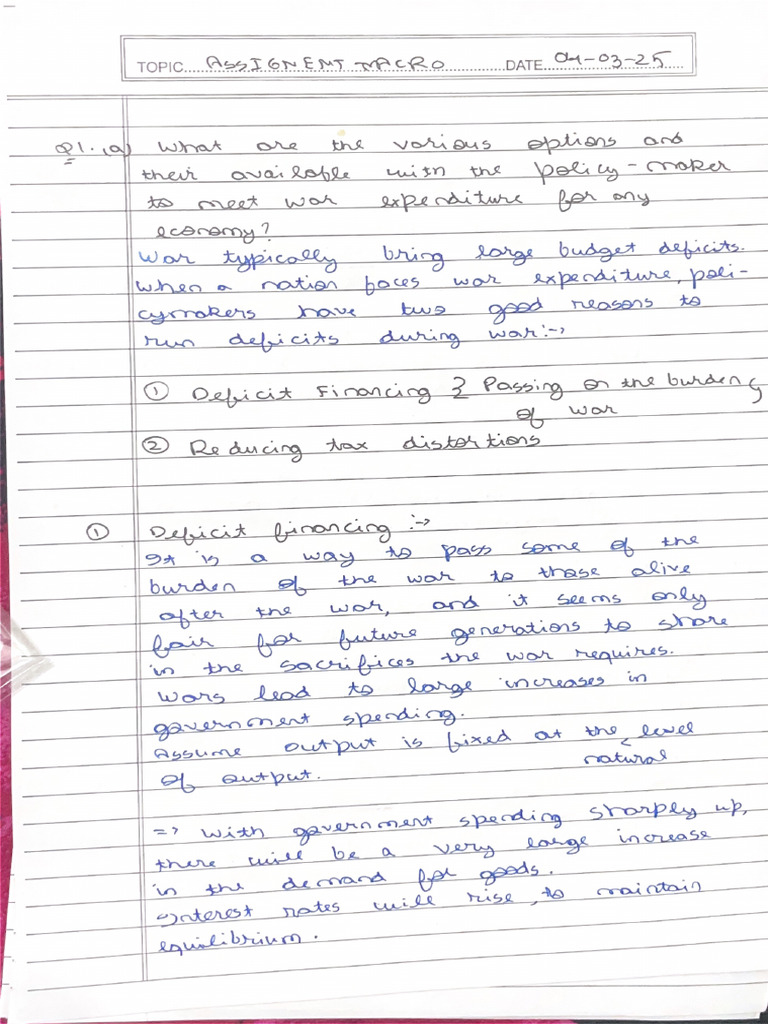 TOPIC....ASSIGNENT MACRO..............DATE..04-03-25.....
Q1. (a) What are the various options and
their available with the policy-maker
to meet war expenditure for any
economy?
War typically bring large budget deficits.
When a nation faces war expenditure, poli-
cymakers have two good reasons to
run deficits during war:->
① Deficit Financing & Passing on the burden
of war
② Reducing tax distortions
① Deficit financing :->
It is a way to pass some of the
burden of the war to those alive
after the war, and it seems only
fair for future generations to share
in the sacrifices the war requires.
Wars lead to large increases in
government spending.
Assume output is fixed at the level
natural
of output.
=> With government spending sharply up,
there will be a very large increase
in the demand for goods.
Interest rates will rise, to maintain
equilibrium.